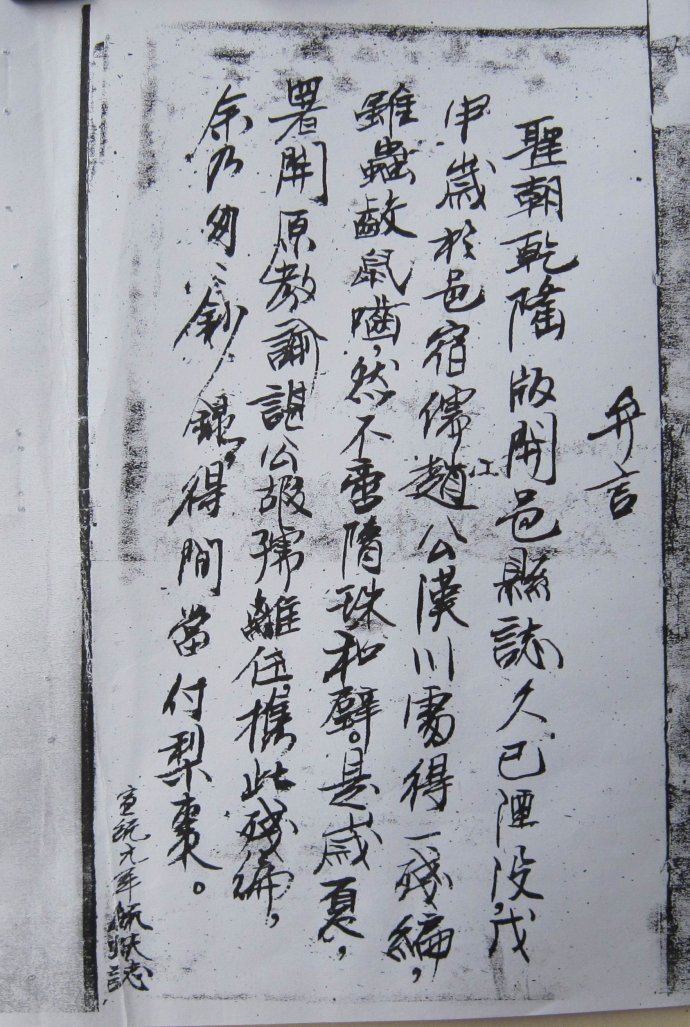 弁言
聖朝乾隆版開邑縣誌久已湮没,戊
申歲於邑宿儒趙公漢川寓得一殘編,
江
雖蟲齩鼠嚙,然不啻隋珠和璧。是歲夏,
署開原教諭諶公嘏孺離任,携此殘編,
余乃匆匆鈔録,得間當付梨棗。
宣統元年 誌